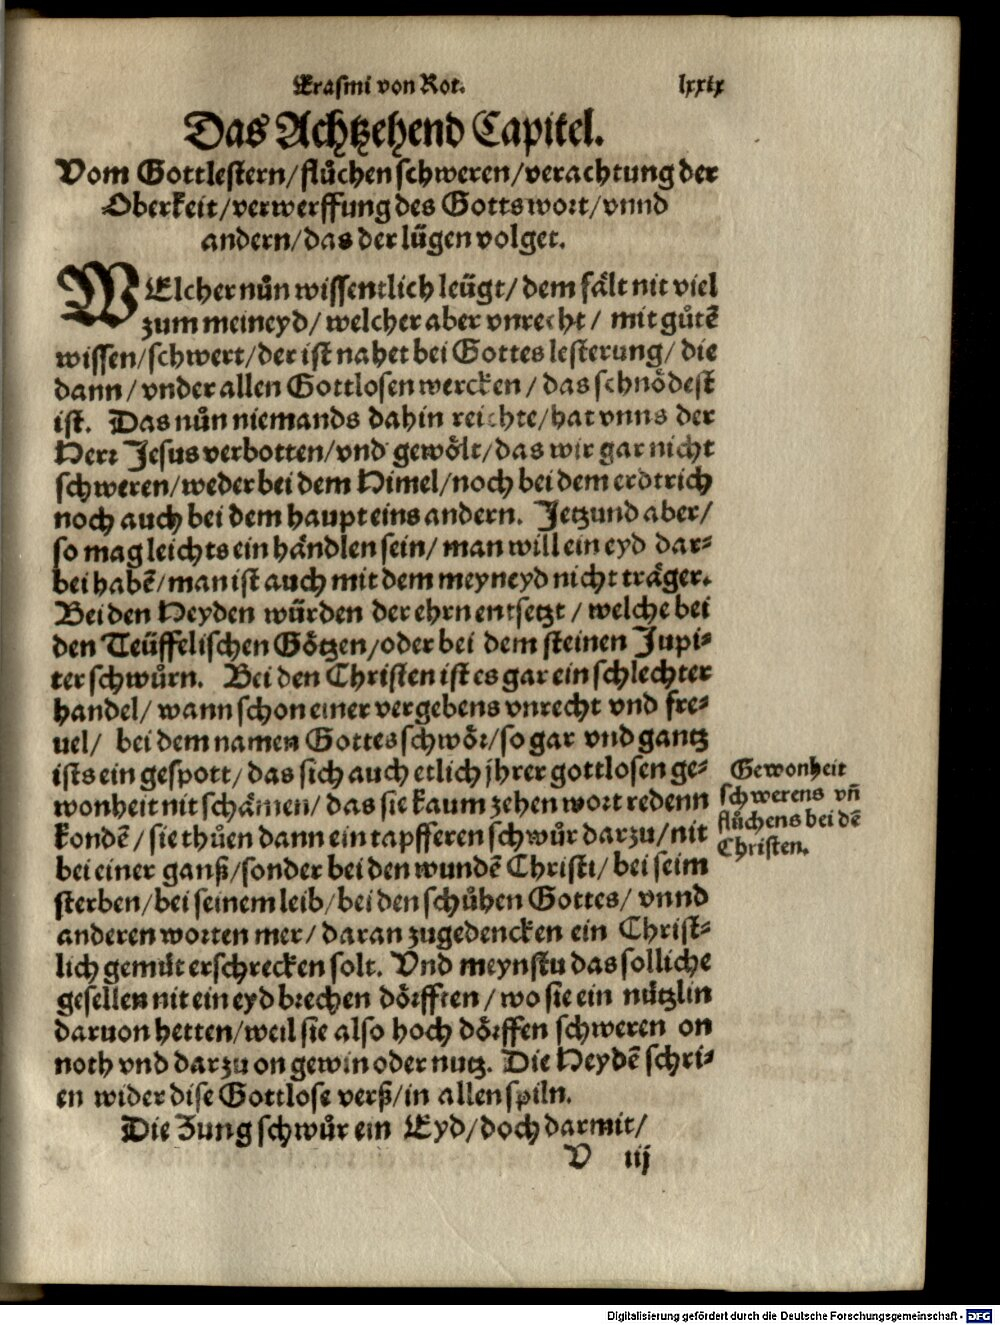 Erasmi von Rot. lxxix
Das Achtzehend Capitel.
Vom Gottlestern/flůchen schweren/verachtung der
Oberkeit/verwerffung des Gottswort/vnnd
andern/das der lügen volget.
WElcher nůn wissentlich leügt/ dem fålt nit viel
zum meineyd/ welcher aber vnrecht/ mit gůtē
wissen/schwert/der ist nahet bei Gottes lesterung/ die
dann/ vnder allen Gottlosen wercken/ das schnödest
ist. Das nůn niemands dahin reichte/hat vnns der
Herr Jesus verbotten/vnd gewölt/das wir gar nicht
schweren/weder bei dem Himel/noch bei dem erdtrich
noch auch bei dem haupt eins andern. Jetzund aber/
so mag leichts ein håndlen sein/ man will ein eyd dar⸗
bei habē/man ist auch mit dem meyneyd nicht tråger.
Bei den Heyden würden der ehrn entsetzt/ welche bei
den Teüffelischen Götzen/oder bei dem steinen Jupi⸗
ter schwůrn. Bei den Christen ist es gar ein schlechter
handel/ wann schon einer vergebens vnrecht vnd fre⸗
uel/ bei dem namen Gottes schwör/so gar vnd gantz
ists ein gespott/das sich auch etlich jhrer gottlosen ge⸗
wonheit nit schåmen/ das sie kaum zehen wort redenn
kondē/sie thůen dann ein tapfferen schwůr darzu/nit
bei einer ganß/sonder bei den wundē Christi/ bei seim
sterben/bei seinem leib/bei den schůhen Gottes/ vnnd
anderen worten mer/ daran zugedencken ein Christ⸗
lich gemüt erschrecken solt. Vnd meynstu das solliche
gesellen nit ein eyd brechen dörfften/wo sie ein nützlin
daruon hetten/weil sie also hoch dörffen schweren on
noth vnd darzu on gewin oder nutz. Die Heydē schri⸗
en wider dise Gottlose verß/in allen spiln.
Die Zung schwůr ein Eyd/doch darmit/
V iij
Gewonheit
schwerens vñ
flůchens bei dē
Christen.
Digitalisierung gefördert durch die Deutsche Forschungsgemeinschaft - DFG